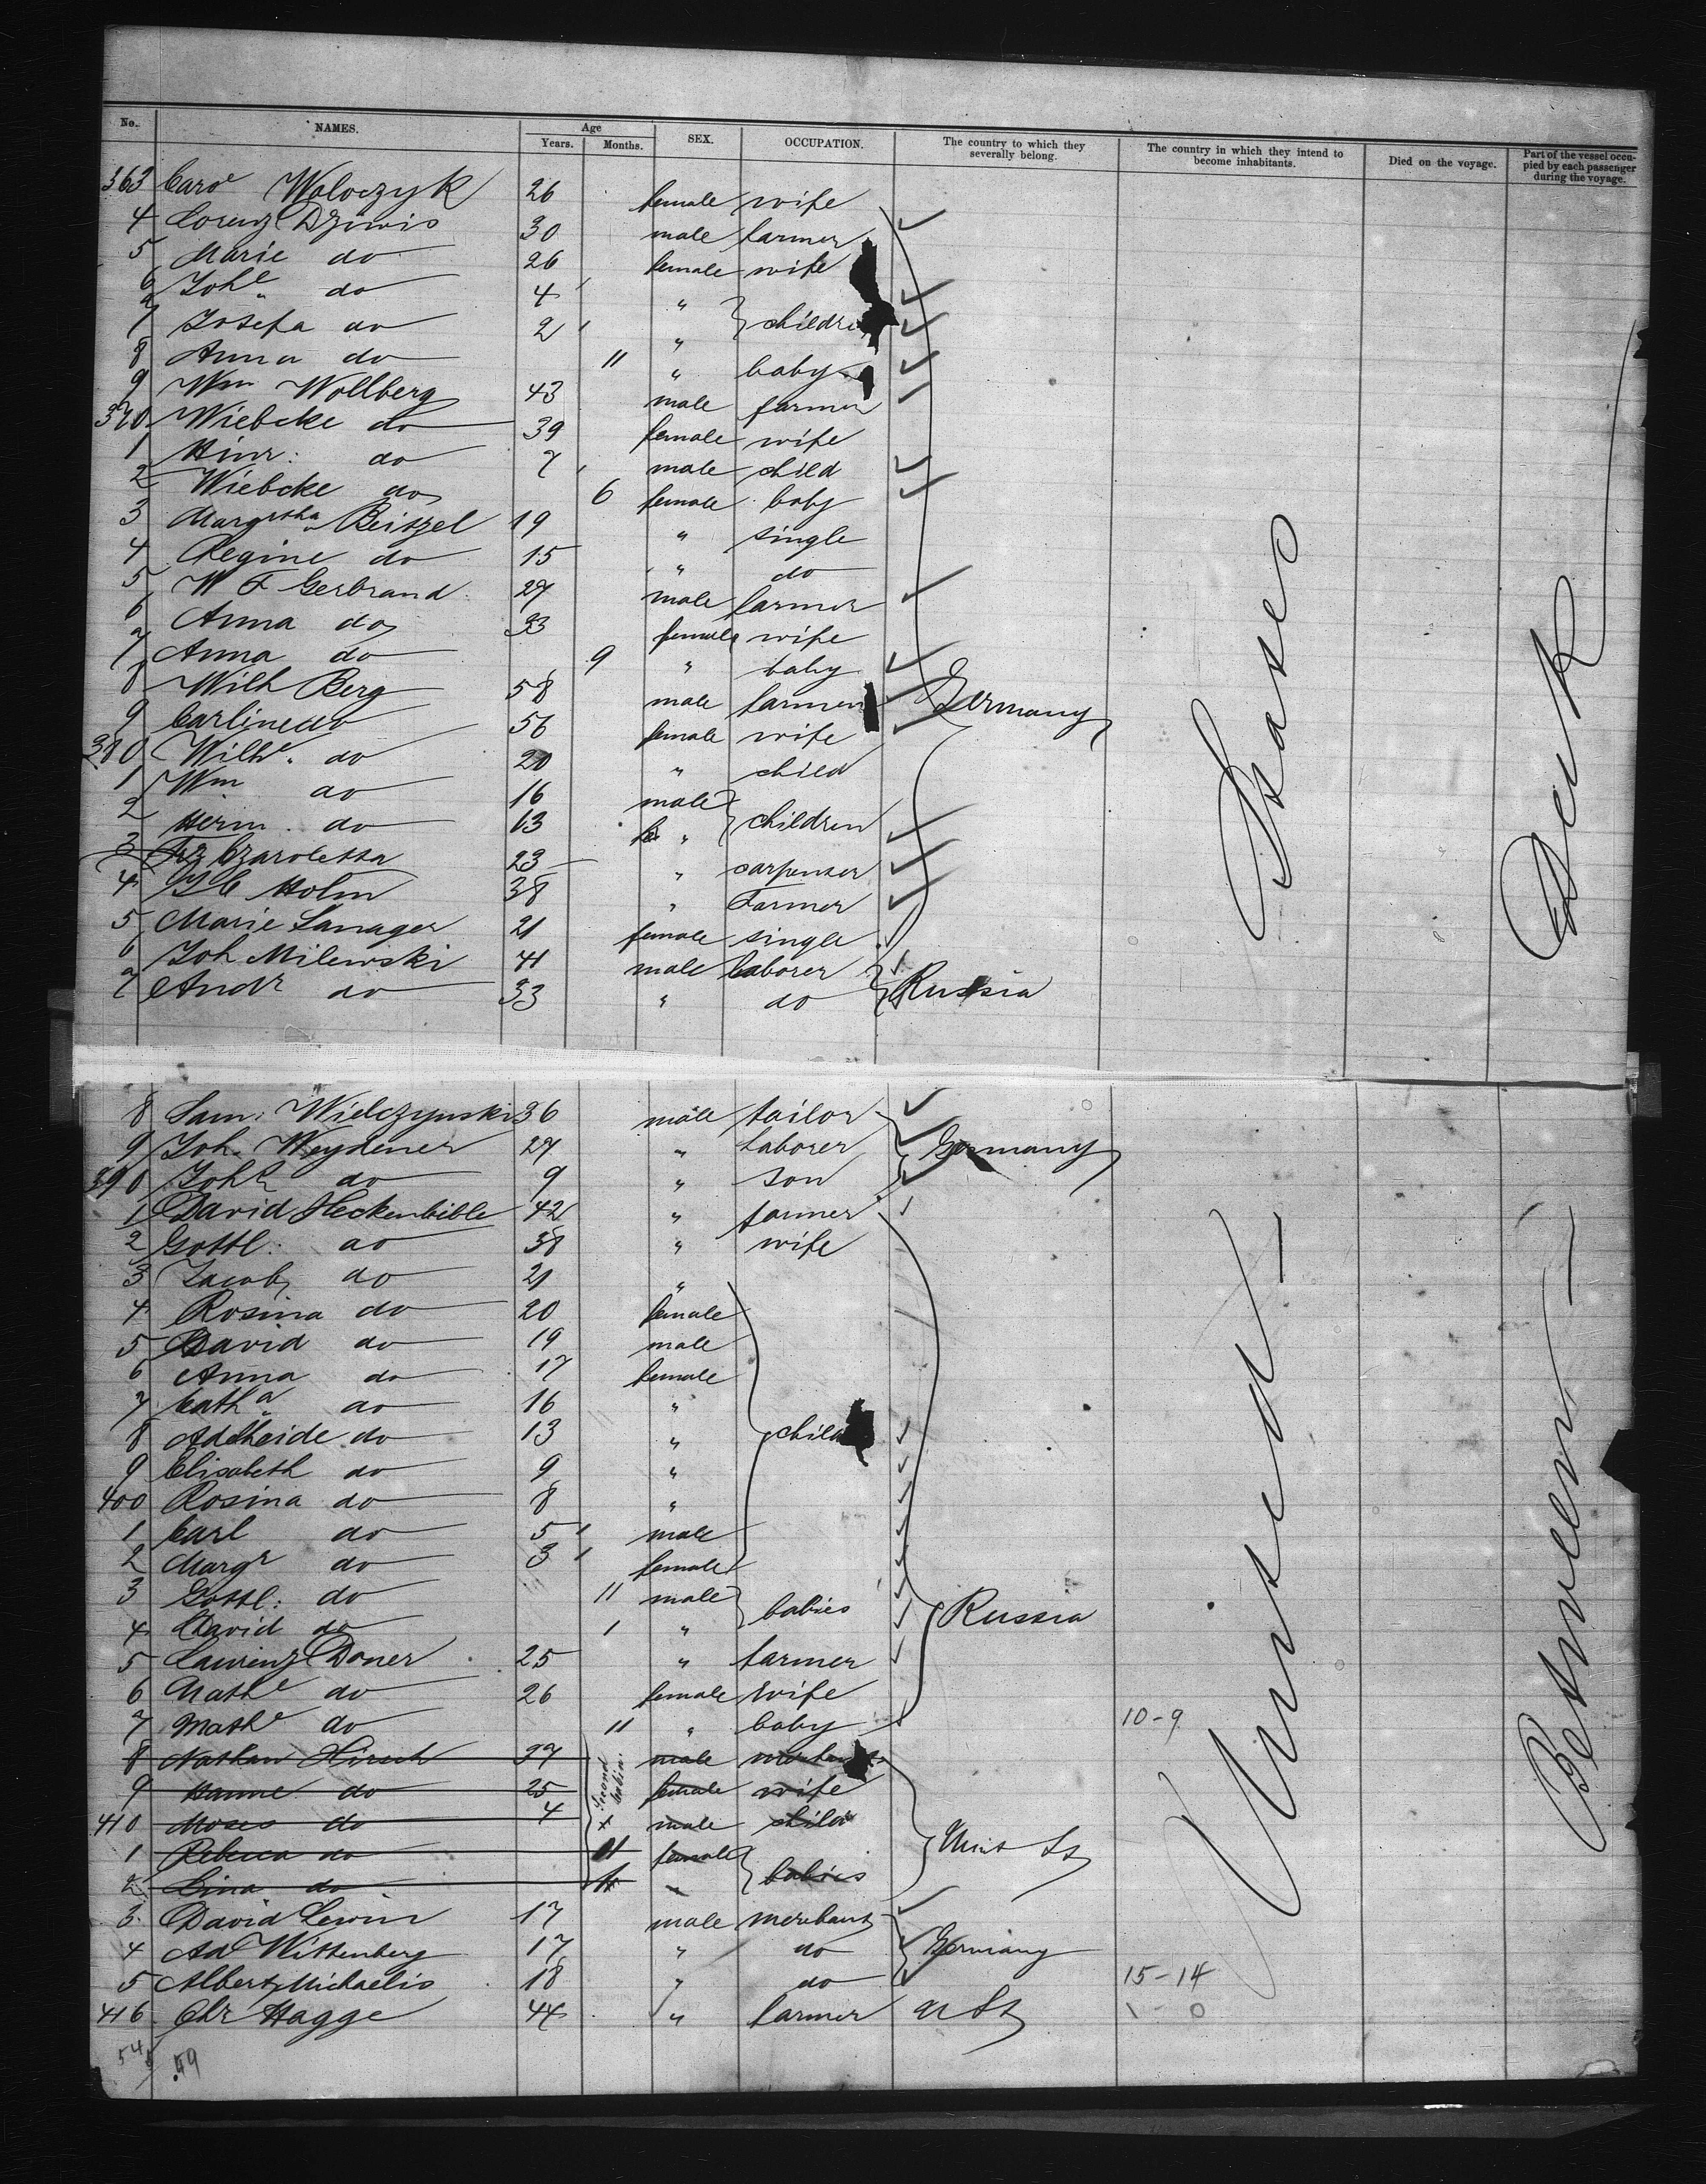 No. NAMES. Age Years. Months. SEX. OCCUPATION. The country to which they severally belong. The country in which they intend to become inhabitants. Died on the voyage. Part of the vessel occupied by each passenger during the voyage.
363 Caroe Woloczyk 26 female wife
4 Lorenz Dziwis 30 male farmer
5 Marie do 26 female wife
6 Johe do 4 "
7 Josefa do 2 " children
8 Anna do 11 " baby
9 Wm Wollberg 43 male farmer
370 Wiebcke do 39 female wife
1 Hinr: do 7 male child
2 Wiebcke do 6 female baby
3 Margretha Beitzel 19 " single
4 Regine do 15 " do
5 W F Gerbrand 27 male farmer
6 Anna do 33 female wife
7 Anna do 9 " baby
8 Wilh Berg 58 male farmer Germany
9 Carline do 56 female wife
380 Wilhe do 20 " child
1 Wm do 16 male
2 Herm. do 13 " children
3 Fr Czaroletta 23 " carpenter
4 Holm 38 " Farmer
5 Marie Lanager 21 female single
6 Joh Milewski 41 male laborer
7 Andr do 33 " do Russia
States
Deck
8 Sam: Wielczynski 36 male tailor
9 Joh. Weydener 27 " laborer Germany
390 Joh do 9 " son
1 David Heckenbible 42 " farmer
2 Gottl: do 38 " wife
3 Jacob do 21 "
4 Rosina do 20 female
5 David do 19 male
6 Anna do 17 female
7 Catha do 16 "
8 Adelheide do 13 " child
9 Elisabeth do 9 "
400 Rosina do 8 "
1 Carl do 5 male
2 Margr do 3 female
3 Gottl: do 11 male babies
4 David do 1 " Russia
5 Laurenz Doner 25 " farmer
6 Mathe do 26 female wife
7 Mathe do 11 " baby 10-9
8 Nathan Hirsch 37 Second Cabin male merchant
9 Hanne do 25 female wife
410 Moses do 4 male child
1 Rebecca do 11 female Unit St
2 Lina do " babies
3 David Lewin 17 male merchant
4 Ad Wittenberg 17 " do Germany
5 Albert Michaelis 18 " do 15-14
416 Chr Hagge 44 " farmer U St 1-0
United
Between
54 59